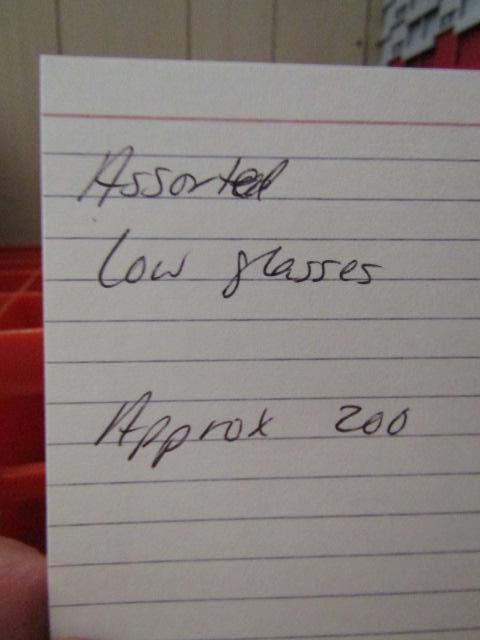 Assorted
Low glasses
Approx 200